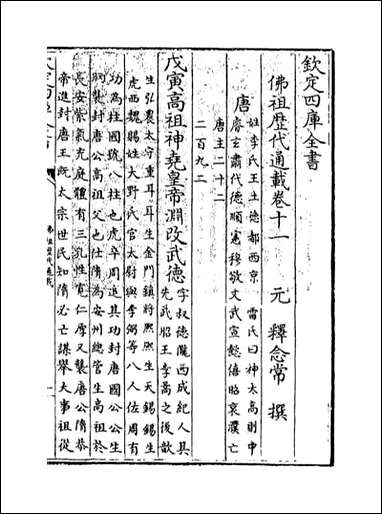 欽定四庫全書
佛祖歷代通載卷十一 元 釋念常 撰
唐
姓李氏王土德都西京 雷氏曰神太高則中
睿玄肅代德順憲穆敬文武宣懿僖昭哀濮亡
唐主二十二
二百九二
戊寅高祖神堯皇帝淵改武德
字叔德隴西成紀人具
先武昭王李暠之後歆
生弘農太守重耳耳生金門鎮將熙熙生天錫錫生
虎西魏賜姓大野氏官太尉與李弼等八人佐周有
功為柱國號八柱也虎卒周追其功封唐國公公生
昞襲封唐公高祖父也仕隋為安州總管生高祖於
長安紫氣充庭體有三乳性寬仁厚又襲唐公隋恭
帝進封唐王既太宗世民知隋必亡謀舉大事祖從
佛祖歷代通載